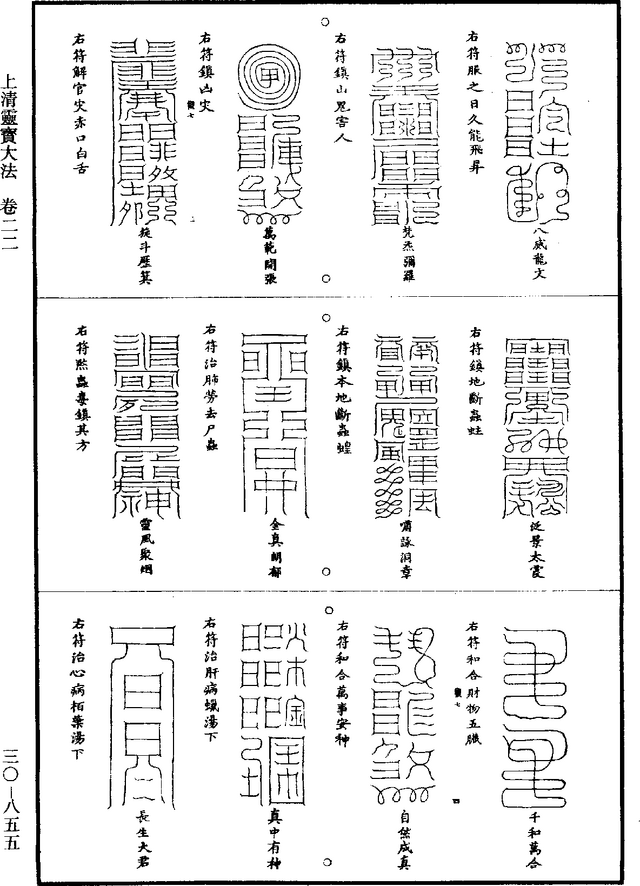 八威龍文
右符服之日久能飛昇
梵炁彌羅
右符鎮山鬼害人
萬範開張
右符鎮凶災
旋斗歷箕
右符解官災赤口白舌
泛景太霞
右符鎮地斷蟲蛀
嘯詠洞章
右符鎮本地斷蟲蝗
金真朗郁
右符治肺勞去尸蟲
靈風聚烟
右符㷊蟲毒鎮其方
千和萬合
右符和合財物五臟
自然成真
四
右符和合萬事安神
真中有神
右符治肝病蠟湯下
長生大君
右符治心病栢葉湯下
上清靈寶大法 卷二二
三〇—八五五